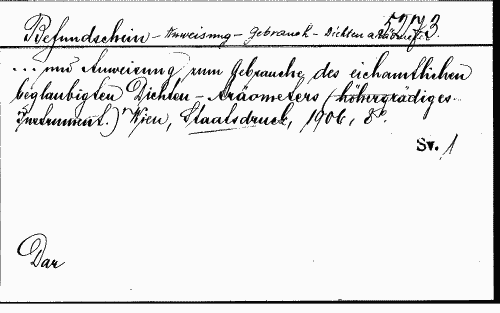 Befundschein - Anweisung - Gebrauch - Dichten aräometers
... und Anweisung zum Gebrauche des eichamtlichen
beglaubigten Dichten - Aräometers (höhergrädiges
Instrument.) Wien, Staatsdruck, 1906, 8°.
Sv. 1
Dar